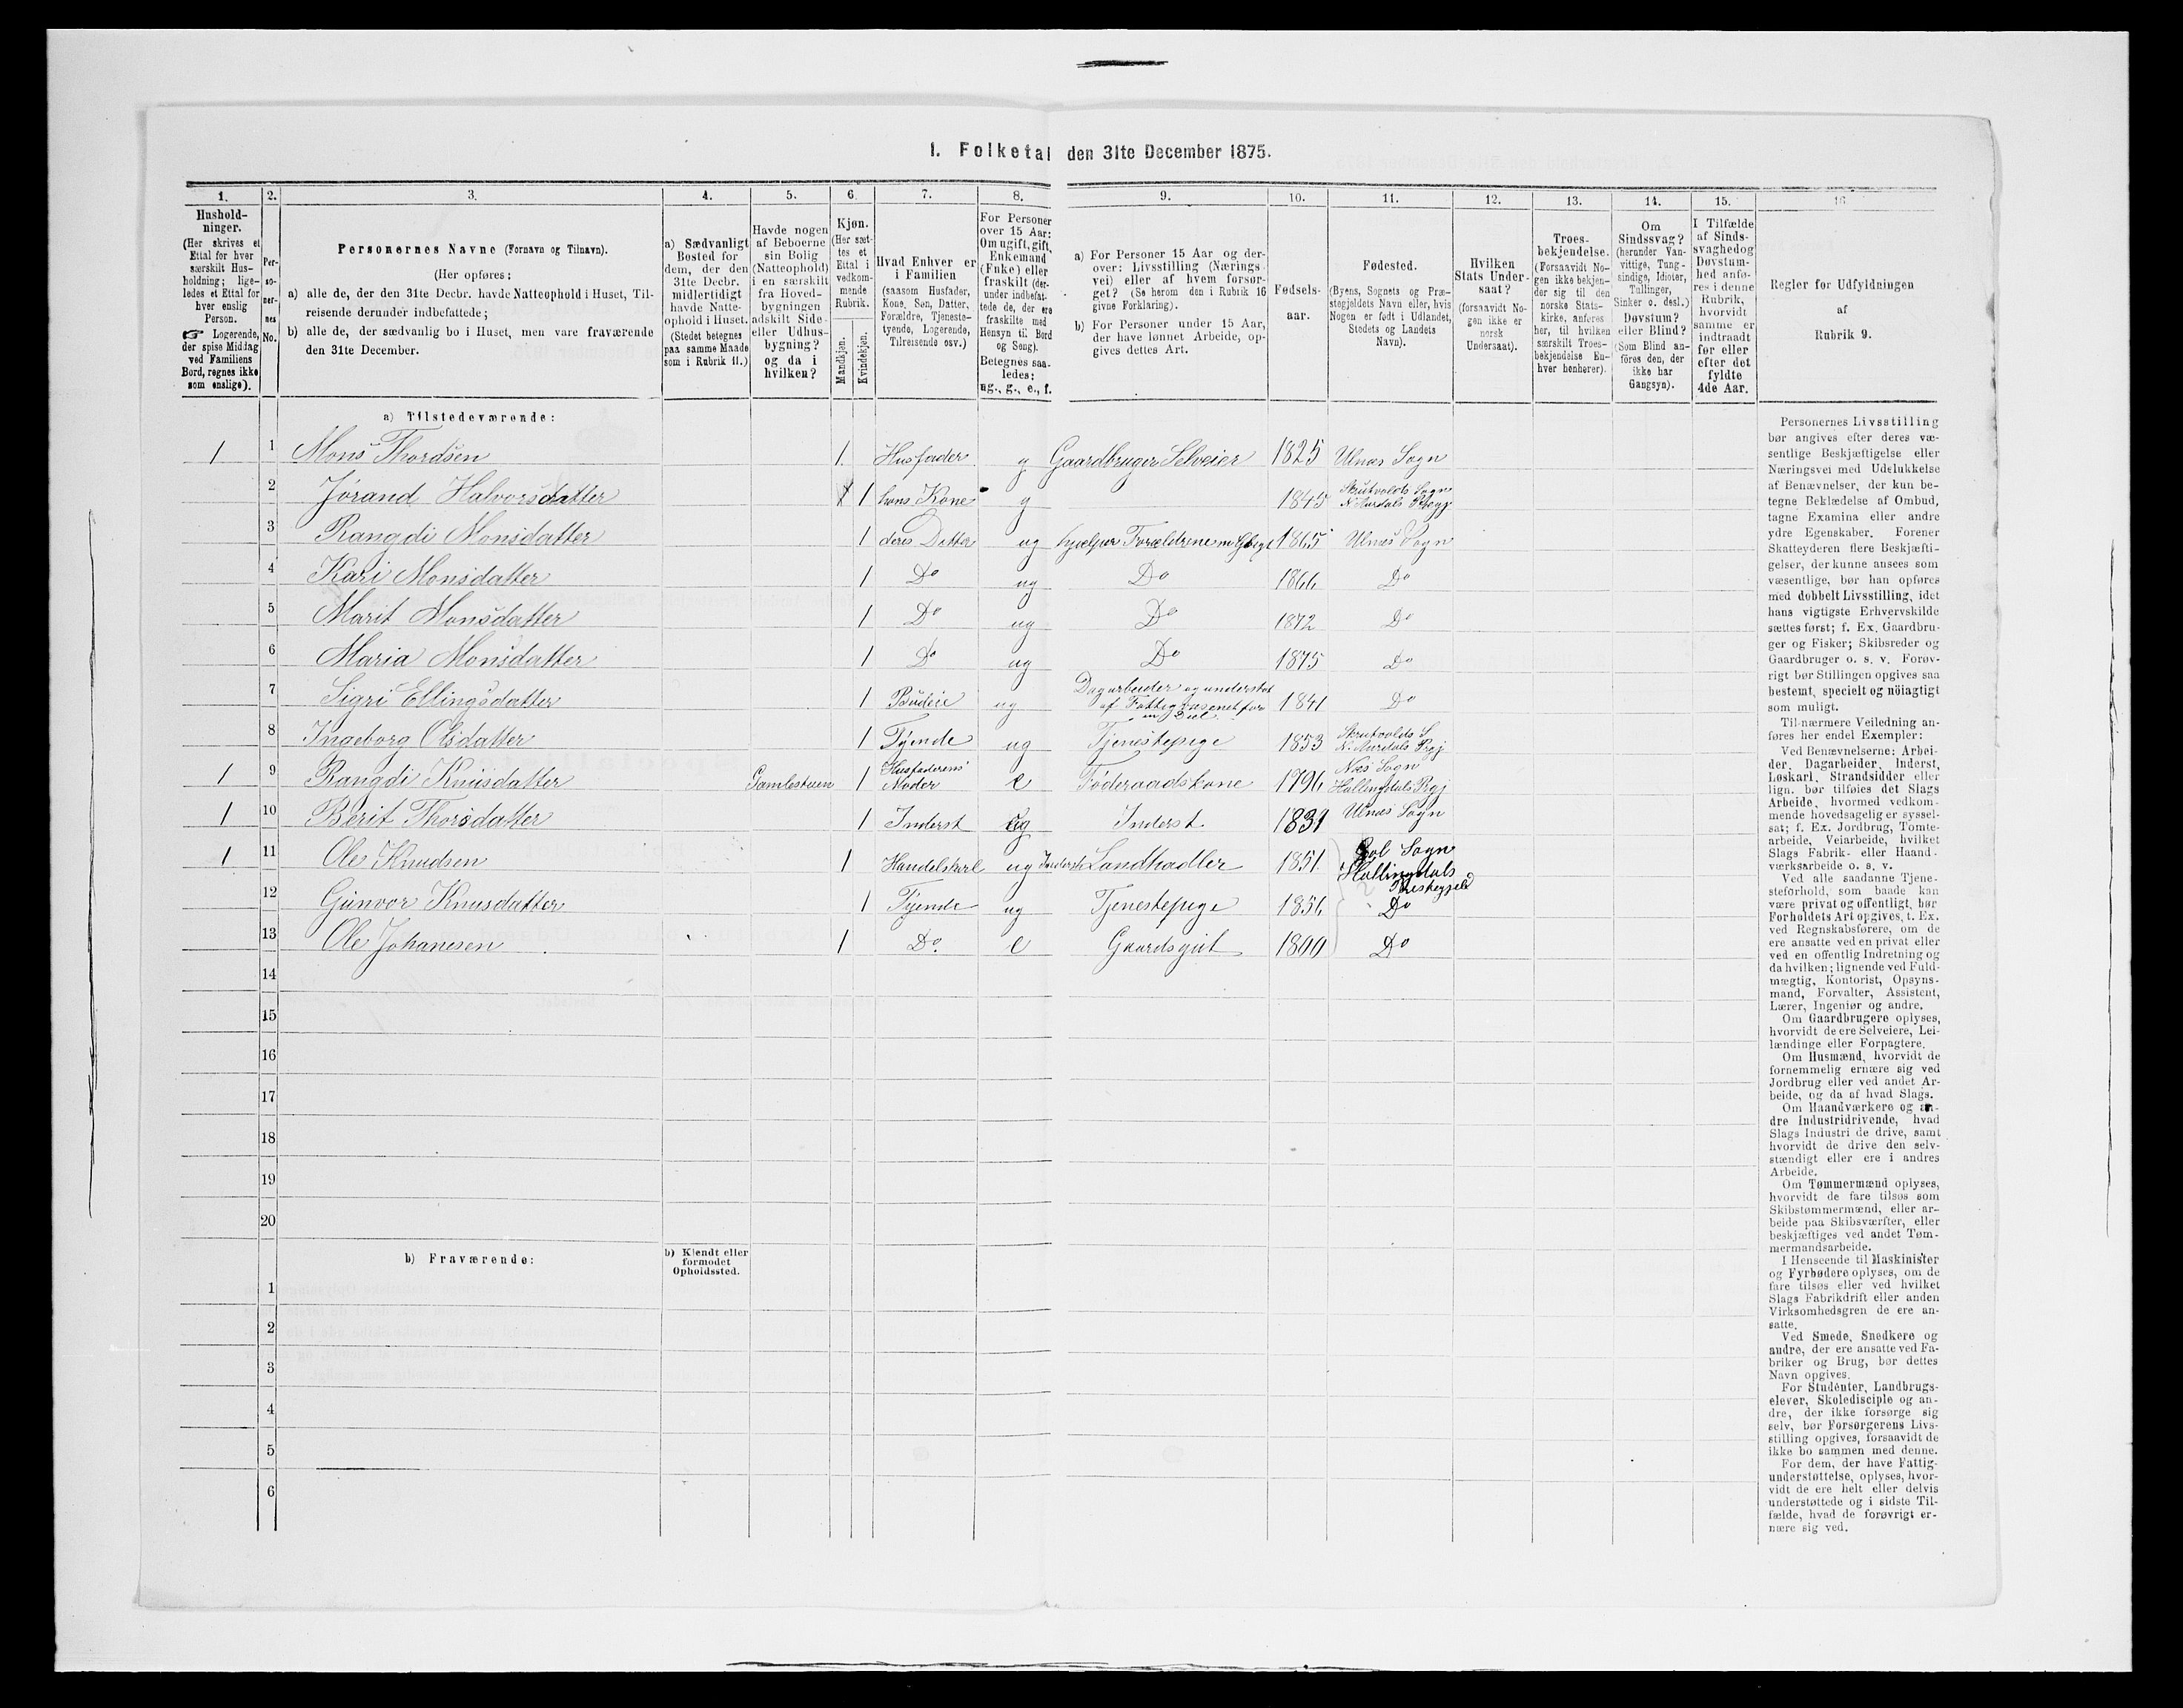 1. Folketal den 31te December 1875.
1. 2. 3. 4. 5. 6. 7. 8. 9. 10. 11. 12. 13. 14. 15. 16
Hushold-
ninger.
(Her skrives et
Ettal for hver
særskilt Hus-
holdning; lige-
ledes et Ettal for
hver enslig
Person.
☞ Logerende,
der spise Middag
ved Familiens
Bord, regnes ikke
som enslige).
Per-
so-
ner-
nes
No.
Personernes Navne (Fornavn og Tilnavn).
(Her opføres:
a) alle de, der den 31te Decbr. havde Natteophold i Huset, Til-
reisende derunder indbefattede;
b) alle de, der sædvanlig bo i Huset, men vare fraværende
den 31te December.
a) Sædvanligt
Bosted for
dem, der den
31te Decbr.
midlertidigt
havde Natte-
ophold i Huset.
(Stedet betegnes
paa samme Maade
som i Rubrik 11.)
Havde nogen
af Beboerne
sin Bolig
(Natteophold)
i en særskilt
fra Hoved-
bygningen
adskilt Side-
eller Udhus-
bygning?
og da i
hvilken?
Kjøn.
(Her sæt-
tes et
Ettal i
vedkom-
mende
Rubrik.
Mandkjøn.
Kvindekjøn.
Hvad Enhver er
i Familien
(saasom Husfader,
Kone, Søn, Datter,
Forældre, Tjeneste-
tyende, Logerende,
Tilreisende osv.)
For Personer
over 15 Aar:
Om ugift, gift,
Enkemand
(Enke) eller
fraskilt (der-
under indbefat-
tede de, der ere
fraskilte med
Hensyn til Bord
og Seng).
Betegnes saa-
ledes:
ug., g., e., f.
a) For Personer 15 Aar og der-
over: Livsstilling (Nærings-
vei) eller af hvem forsør-
get? (Se herom den i Rubrik 16
givne Forklaring).
b) For Personer under 15 Aar,
der have lønnet Arbeide, op-
gives dettes Art.
Fødsels-
aar.
Fødested.
(Byens, Sognets og Præ-
stegjeldets Navn eller, hvis
Nogen er født i Udlandet,
Stedets og Landets
Navn).
Hvilken
Stats Under-
saat?
(forsaavidt No-
gen ikke er
norsk
Undersaat).
Troes-
bekjendelse.
(Forsaavidt No-
gen ikke bekjen-
der sig til den
norske Stats-
kirke, anføres
her, til hvilken
særskilt Troes-
bekjendelse En-
hver henhører).
Om
Sindssvag?
(herunder Van-
vittige, Tung-
sindige, Idioter,
Tullinger,
Sinker o. desl.)
Døvstum?
eller Blind?
(Som Blind an-
føres den, der
ikke har
Gangsyn).
I Tilfælde
af Sinds-
svaghed og
Døvstum-
hed anfø-
res i denne
Rubrik,
hvorvidt
samme er
indtraadt
før eller
efter det
fyldte
4de Aar.
Regler for Udfyldningen
af
Rubrik 9.
a) Tilstedeværende:
1 1 Mons Thordsen 1. Husfader g Gaardbruger Selveier 1825 Ulnæs Sogn
2 Jørand Halvorsdatter 1 hans Kone g 1845 Skrutvolds Sogn
N. Aurdals Prgj
3 Rangdi Monsdatter 1 deres Datter ug hjælper Forældrene 1865 Ulnæs Sogn
4 Kari Monsdatter 1 Do ug Do 1866 Do
5 Marit Monsdatter 1 Do ug Do 1872 Do
6 Maria Monsdatter 1 Do ug Do 1875 Do
7 Sigri Ellingsdatter 1 Budeie ug Dagarbeider og understøt
af Fattigvæsenet for
en Del 1841 Do
8 Ingeborg Olsdatter 1 Tyende ug Tjenestepige 1853 Skrutvolds S
N. Aurdals Prgj
1 9 Rangdi Knusdatter Gamlestuen 1 Husfaderens
Moder e Føderaadskone 1796 Næs Sogn
Hallingdals Prgj
1 10 Berit Thorsdatter 1 Inderst ug Inderst 1831 Ulnæs Sogn
1 11 Ole Knudsen 1 Handelskarl ug Inderst Landhadler 1851. Gol Sogn
Hallingdals
Præstegjeld
12 Gunvor Knusdatter 1 Tyende ug Tjenestepige 1856 Do
13 Ole Johanesen 1 Do. e Gaardsgut 1800 Do
14
15
16
17
18
19
20
b) Fraværende:
b) Kjendt eller
formodet
Opholdssted.
1
2
3
4
5
6
Personernes Livsstilling
bør angives efter deres væ-
sentlige Beskjæftigelse eller
Næringsvei med Udelukkelse
af Benævnelser, der kun be-
tegne Beklædelse af Ombud,
tagne Examina eller andre
ydre Egenskaber. Forener
Skatteyderen flere Beskjæfti-
gelser, der kunne ansees som
væsentlige, bør han opføres
med dobbelt Livsstilling, idet
hans vigtigste Erhvervskilde
sættes først; f. Ex. Gaardbru-
ger og Fisker; Skibsreder og
Gaardbruger o. s. v. Forøv-
rigt bør Stillingen opgives saa
bestemt, specielt og nöiagtigt
som muligt.
Til nærmere Veiledning an-
føres her endel Exempler:
Ved Benævnelserne: Arbei-
der, Dagarbeider, Inderst,
Løskarl, Strandsidder eller
lign. bør tilføies det Slags
Arbeide, hvormed vedkom-
mende hovedsagelig er syssel-
sat; f. Ex. Jordbrug, Tomte-
arbeide, Veiarbeide, hvilket
Slags Fabrik- eller Haand-
værksarbeide o. s. v.
Ved alle saadanne Tjene-
steforhold, som baade kan
være privat og offentligt, bør
Forholdets Art opgives, t. Ex.
ved Regnskabsførere, om de
ere ansatte ved en privat eller
ved en offentlig Indretning og
da hvilken; lignende ved Fuld-
mægtig, Kontorist, Opsyns-
mand, Forvalter, Assistent,
Lærer, Ingeniør og andre.
Om Gaardbrugere oplyses,
hvorvidt de ere Selveiere, Lei-
lændinge eller Forpagtere.
Om Husmænd, hvorvidt de
fornemmelig ernære sig ved
Jordbrug eller ved andet Ar-
beide, og da af hvad Slags.
Om Haandværkere og an-
dre Industridrivende, hvad
Slags Industri de drive, samt
hvorvidt de drive den selv-
stændigt eller ere i andres
Arbeide.
Om Tømmermænd oplyses,
hvorvidt de fare tilsøs som
Skibstømmermænd, eller ar-
beide paa Skibsværfter, eller
beskjæftiges ved andet Tøm-
mermandsarbeide.
I Henseende til Maskinister
og Fyrbødere oplyses, om de
fare tilsøs eller ved hvilket
Slags Fabrikdrift eller anden
Virksomhedsgren de ere an-
satte.
Ved Smede, Snedkere og
andre, der ere ansatte ved Fa-
briker og Brug, bør dettes
Navn opgives.
For Studenter, Landbrugs-
elever, Skoledisciple og an-
dre, der ikke forsørge sig
selv, bør Forsørgerens Livs-
stilling opgives, forsaavidt de
ikke bo sammen med denne.
For dem, der have Fattig-
understøttelse, oplyses, hvor-
vidt de ere helt eller delvis
understøttede og i sidste Til-
fælde, hvad de forøvrigt er-
nære sig ved.